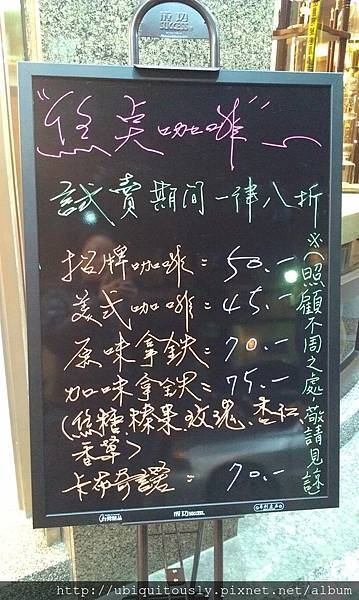 成功
SUCCESS
"焦点咖啡"
試賣期间一律八折
招牌咖啡：50.-
美式咖啡：45.-
原味拿鉄：70.-
加味拿鉄：75.-
(焦糖、榛果、玫瑰、杏仁、
香草)
卡布奇諾：70.-
※(照顧不周之處，敬請見諒)
成功 SUCCESS
http://ubiquitously.pixnet.net/album